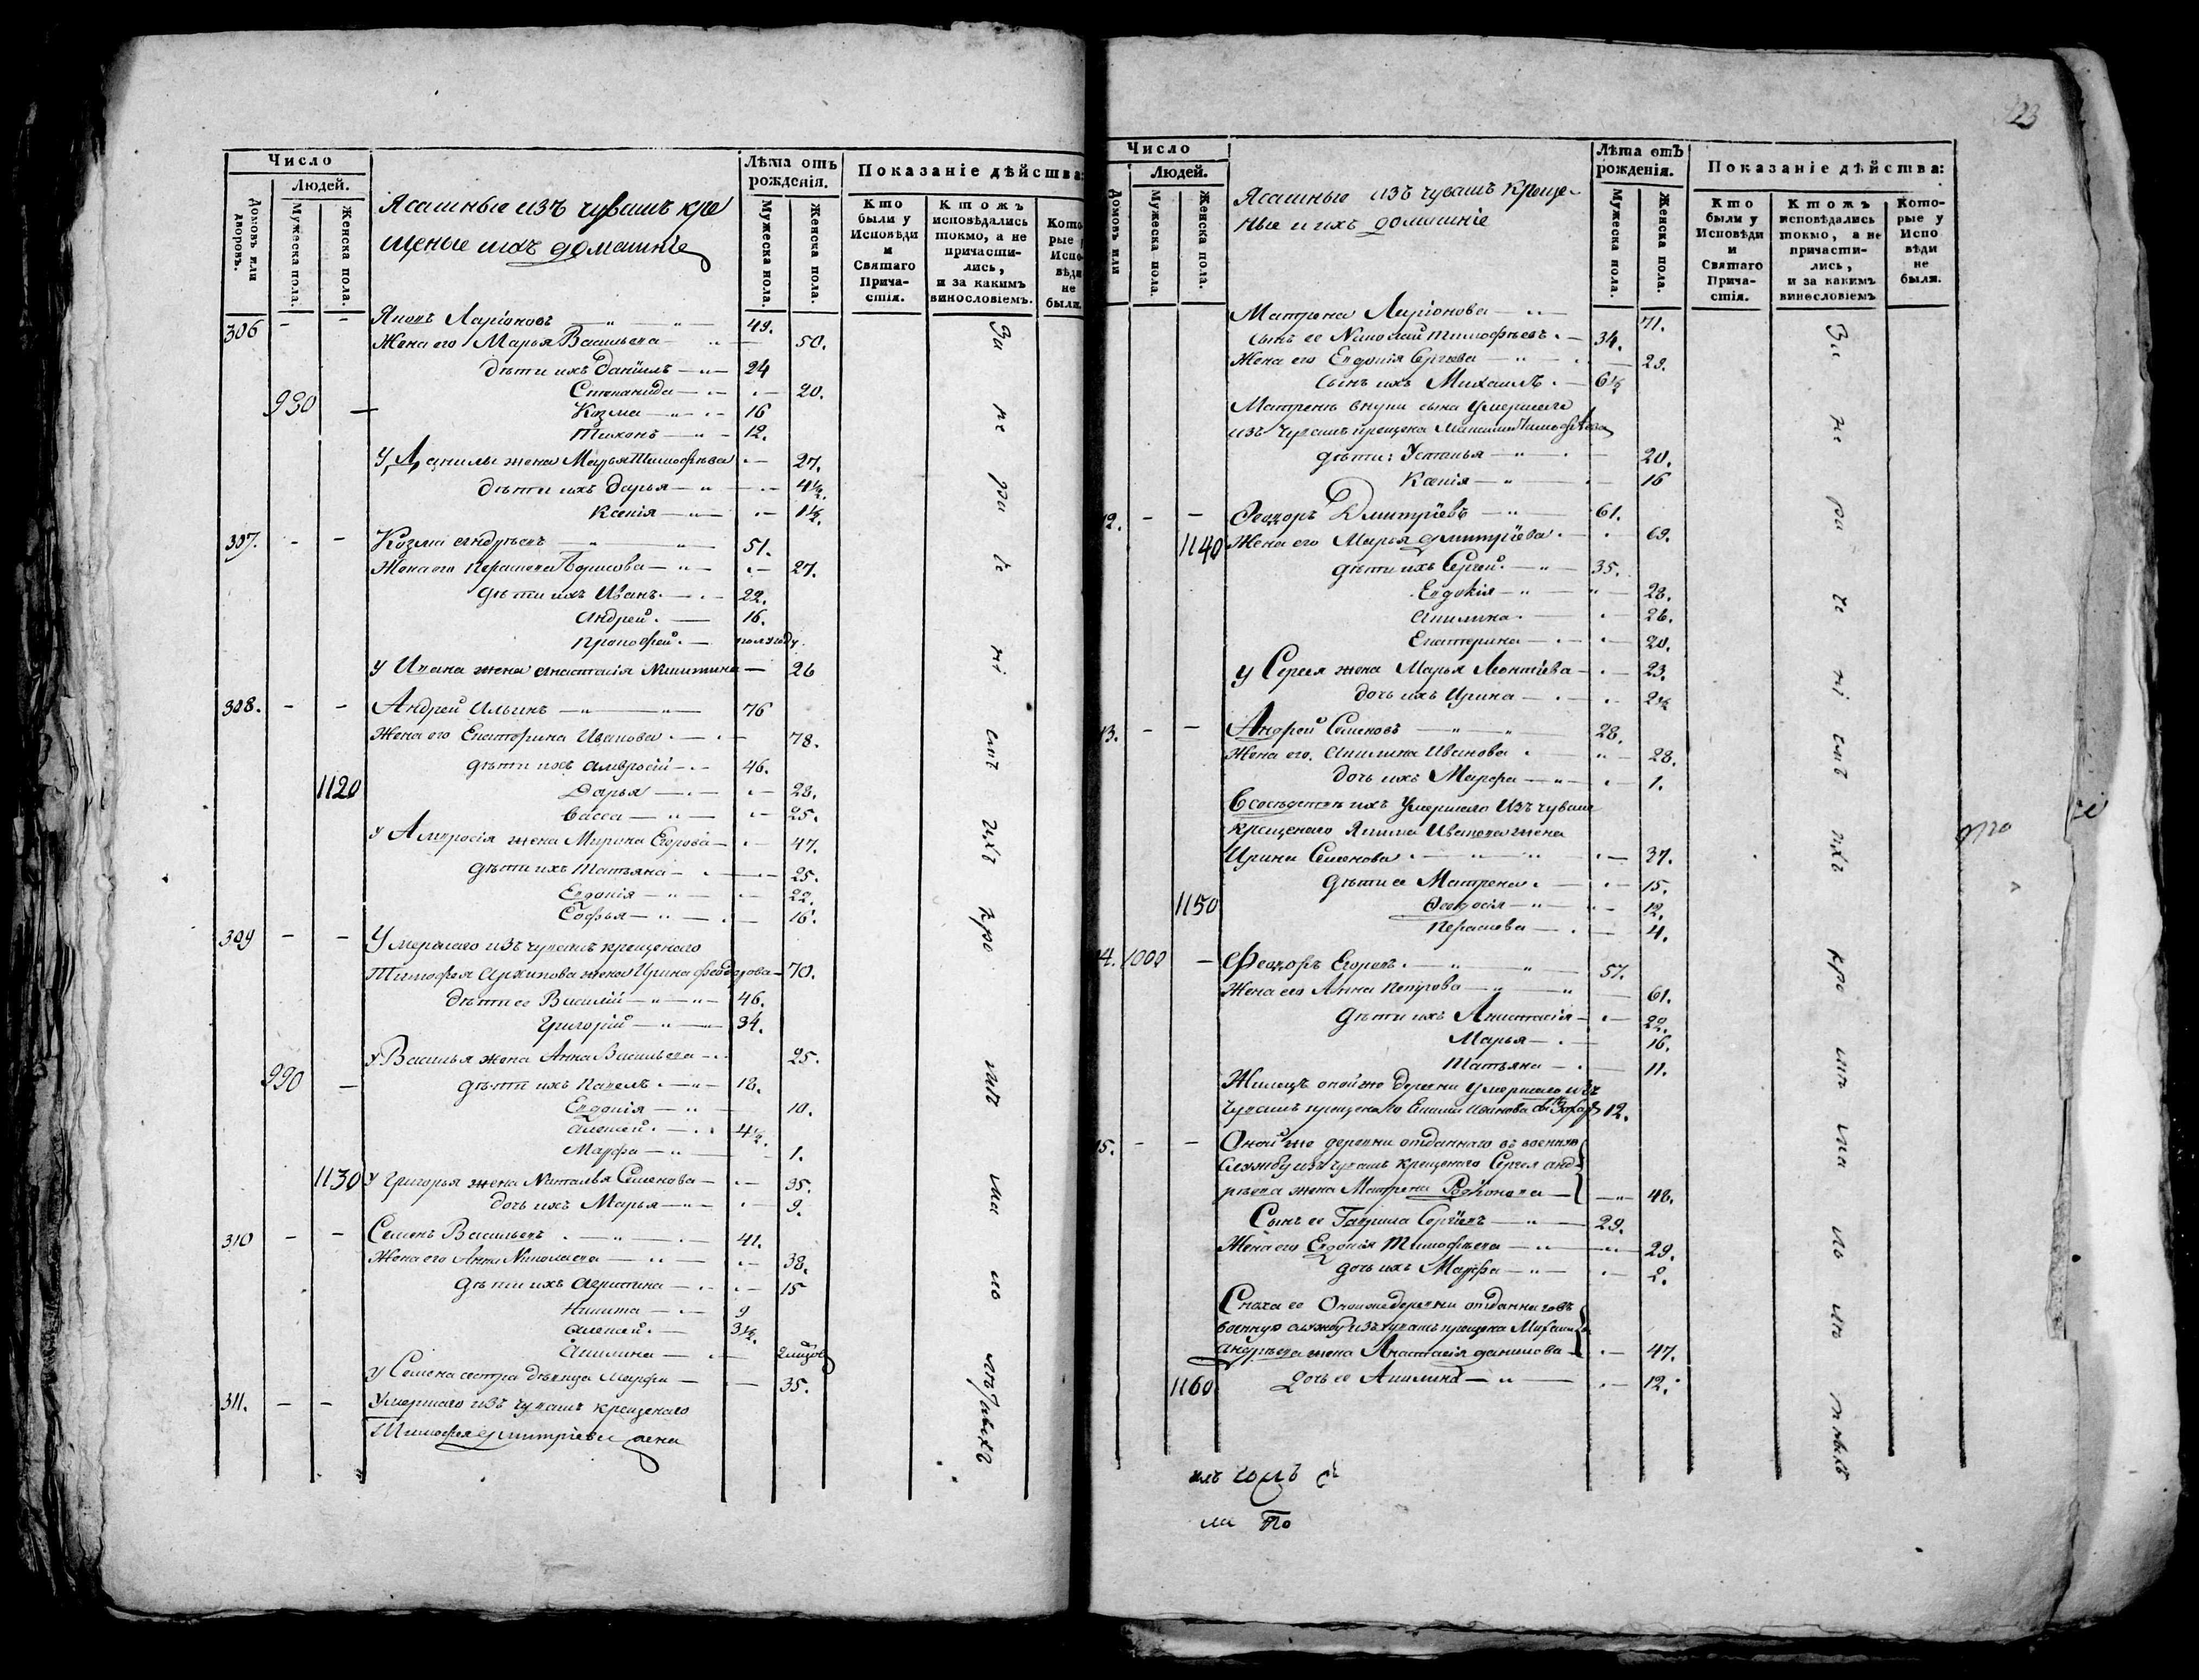 Число
Людей.
Домовъ или дворовъ.
Мужеска пола.
Женска пола.
Ясашные изъ чувашъ кре
щеные и ихъ домашніе
Лѣта отъ рожденія.
Мужеска пола.
Женска пола.
Показаніе дѣйства:
Кто были у Исповѣди и Святаго Причастія.
Ктожъ исповѣдались токмо, а не причастились, и за какимъ винословіемъ.
Кото- рые Испо- вѣди не были.
306 - - Яковъ Ларіоновъ 49.
Жена его Марья Васильева 50.
дѣти ихъ Даніилъ 24
Степанида 20.
930 Козма 16
Тихонъ 12.
У Данилы жена Марья Тимофѣева 27.
дѣти ихъ Дарья 4½.
Ксенія 1½.
307. - - Козма Андреевъ 51.
Жена его Борисова 27.
дѣти ихъ Иванъ 22.
Андрей 16.
полугоду.
У Ивана жена Анастасія Никитина 26
308. - - Андрей Ильинъ 76
Жена его Екатерина Иванова 78.
дѣти ихъ Амвросій 46.
1120 Дарья 28.
Васса 25.
У Амвросія жена Марина Егорова 47.
дѣти ихъ Татьяна 25.
Евдокія 22.
Софья 16.
309 - - Умершаго изъ чувашъ крещенаго
Тимофея Архипова жена Ирина Феодорова 70.
дѣти ее Василій 46.
Григорій 34.
У Василья жена Анна Васильева 25.
990 дѣти ихъ Павелъ 18.
Евдокія 10.
Алексей 4½.
Марфа 1.
1130 У Григорья жена Наталья Семенова 35.
дочь ихъ Марья 9.
310 - - Семенъ Васильевъ 41.
Жена его Анна Николаева 38.
дѣти ихъ 15
Никита 9
Алексей 3½.
Акилина
У Семена сестра дѣвица Марфа 35.
311. - - Умершаго изъ чувашъ крещенаго
Тимофея Дмитріева жена
За не ра че ні емъ ихъ про
23
Число
Людей.
Домовъ или
Мужеска пола.
Женска пола.
Ясашные изъ чувашъ креще-
ные и ихъ домашніе
Лѣта отЪ рожденія.
Мужеска пола.
Женска пола.
Показаніе дѣйства:
Кто были у Исповѣди и Святаго Причастія.
Ктожъ исповѣдались токмо, а не причастились, и за какимъ винословіемъ
Кото- рые у Испо вѣди не были.
Матрена Ларіонова 71.
сынъ ее Николай Тимофѣевъ 34.
Жена его Евдокія Сергѣева 29.
сынъ ихъ Михаилъ 6½
Матрены внуки сына умершаго
изъ чувашъ крещена Тимофѣева
дѣти: Устинья 20.
Ксенія 16
12. - - Феодоръ Дмитріевъ 61.
1140 Жена его Марья Дмитріева 69.
дѣти ихъ Сергей 35.
Евдокія 28.
Акилина 26.
Екатерина 20.
У Сергея жена Марья Леонтіева 23.
дочь ихъ Ирина 2½
13. - - Андрей Семеновъ 28.
Жена его Акилина Иванова 28.
дочь ихъ Марфа 1.
В соседстве ихъ умершаго изъ чуваш
крещенаго Якима Иванова жена
Ирина Семенова 37.
дѣти ее Матрена 15.
1150 Феодосія 12.
4.
14. 1000 - Феодоръ Егоровъ 57.
Жена его Анна Петрова 61.
дѣти ихъ Анастасія 22.
Марья 16.
Татьяна 11.
Жилецъ оной же деревни умершаго изъ
чувашъ крещенаго Иванова 12.
15. - - Оной же деревни отданнаго въ военную
службу изъ чувашъ крещенаго Сергея Анд-
рѣева жена Матрена Родіонова 48.
Сынъ ее Гаврила Сергѣевъ 29.
Жена его Евдокія Тимофѣева 29.
дочь ихъ Марфа 2.
Сноха ее Оной же деревни отданнаго въ
военную службу изъ чувашъ крещена Михаила
Андрѣева жена Анастасія Данилова 47.
1160 Дочь ее Акилина 12.
За не ра че ні емъ ихъ про